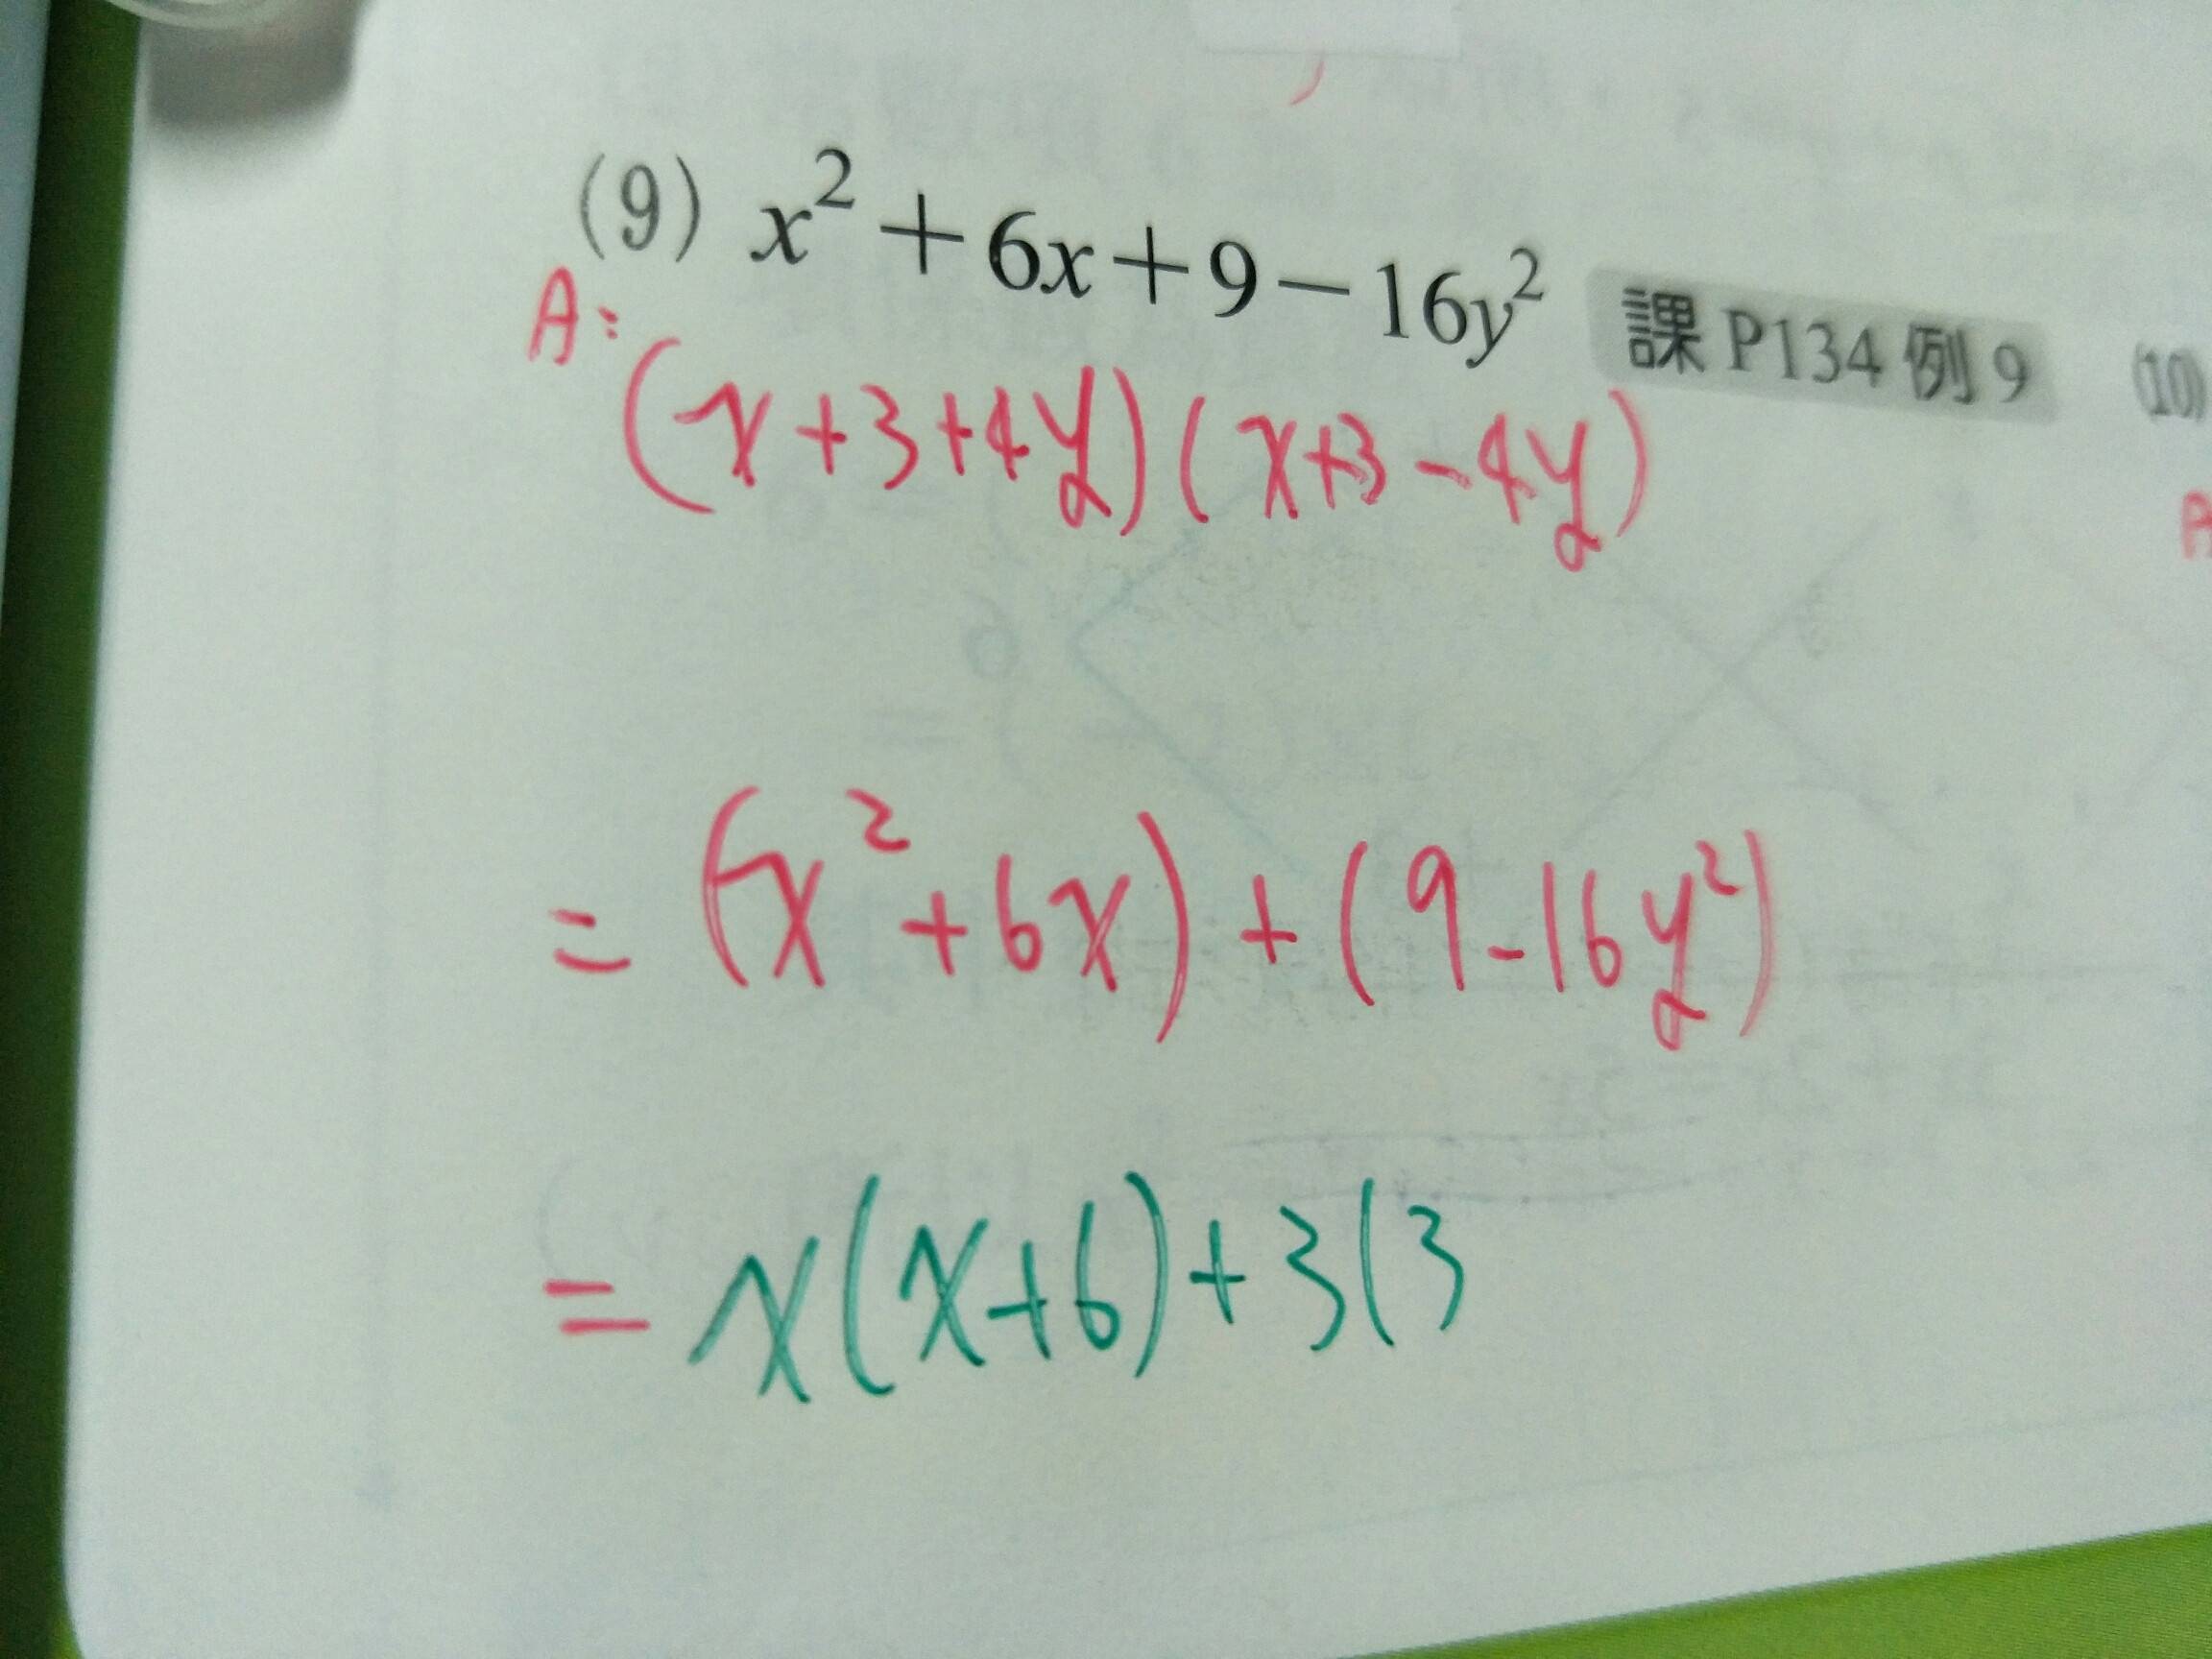 (9) x²+6x+9−16y² 課 P134 例 9 (10)
A: (x+3+4y)(x+3-4y)
= (x²+6x)+(9-16y²)
= x(x+6)+3(3